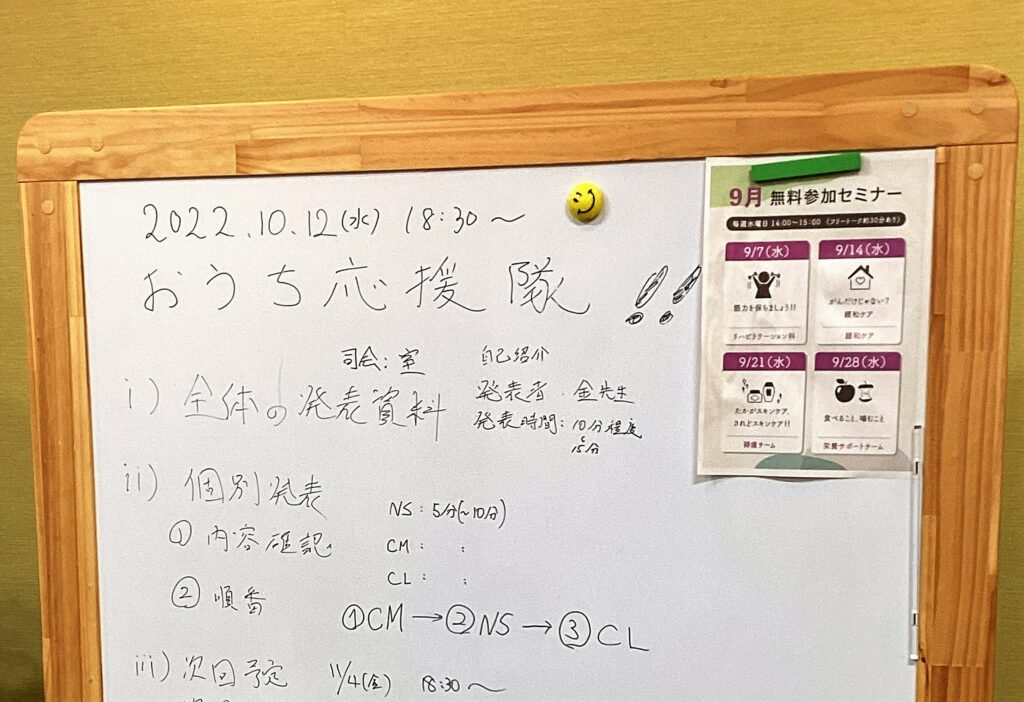 2022.10.12(水) 18:30～
おうち応援隊!!
司会:室
自己紹介
i) 全体の発表資料
発表者 金先生
発表時間:10分程度
15分
ii) 個別発表
① 内容確認
NS:5分(～10分)
CM: :
CL: :
② 順番
①CM→②NS→③CL
iii) 次回予定 11/4(金) 18:30～
9月 無料参加セミナー
毎週水曜日 14:00～15:00 (フリートーク約30分あり)
9/7(水)
筋力を保ちましょう!!
リハビリテーション科
9/14(水)
がんだけじゃない?
緩和ケア
緩和ケア
9/21(水)
たかがスキンケア、
されどスキンケア!!
褥瘡チーム
9/28(水)
食べること、噛むこと
栄養サポートチーム